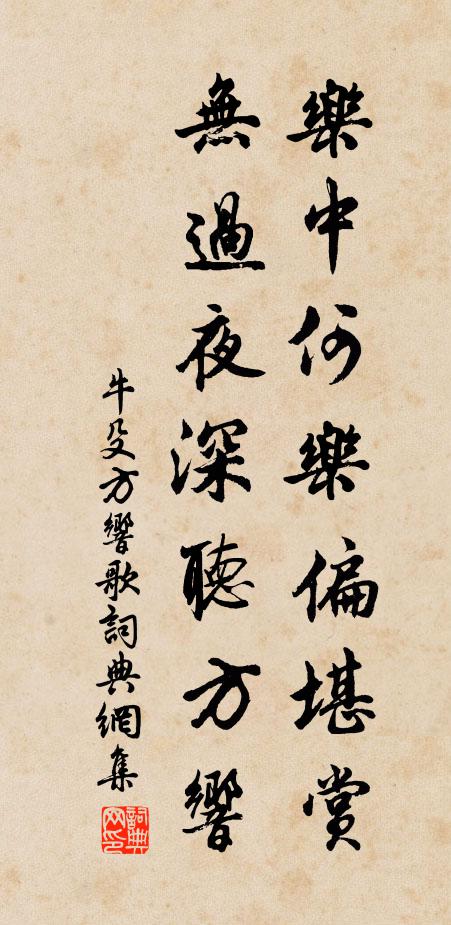 樂中何樂偏堪賞
無過夜深聽方響
牛殳方響歌詞典網集
詞典網印